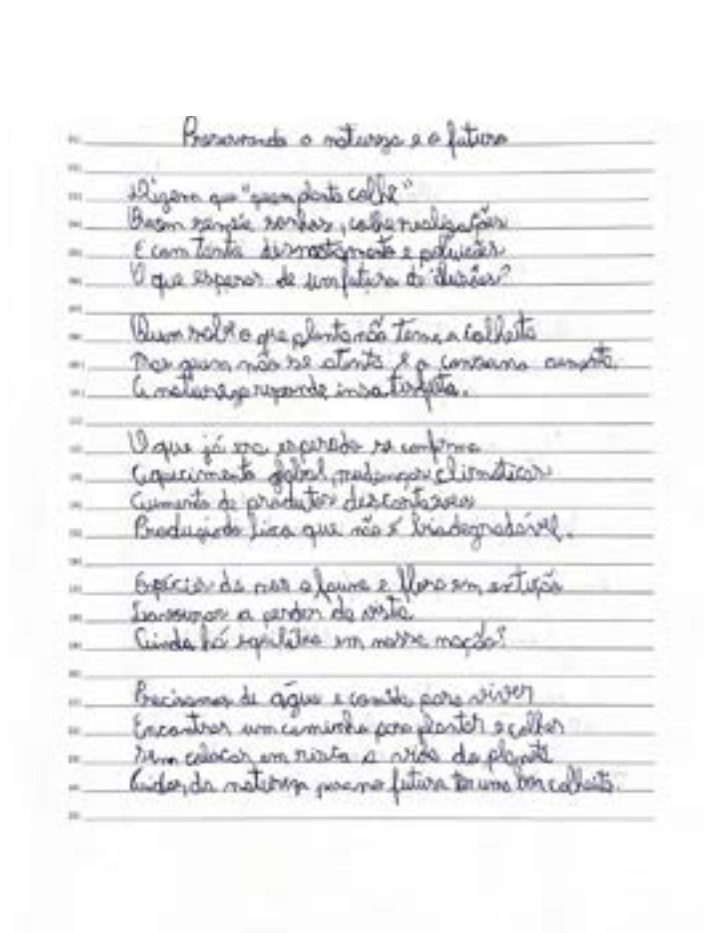 Preservando a natureza e o futuro
Dizem que "quem planta colhe"
Quem semeia sonhos, colhe realizações
E com tanto desmatamento e poluições
O que esperar de um futuro de ilusões?
Quem sabe o que planta não teme a colheita
Mas quem não se atenta e o consumo aumenta
A natureza responde insatisfeita.
O que já era esperado se confirma
Aquecimento global, mudanças climáticas
Aumento de produtos descartáveis
Produzindo lixo que não é biodegradável.
Espécies da nossa fauna e flora em extinção
a perder de vista
Ainda há equilíbrio em nossa nação?
Precisamos de água e comida para viver
Encontrar um caminho para plantar e colher
Sem colocar em risco a vida do planeta
Cuidar da natureza para no futuro ter uma boa colheita.